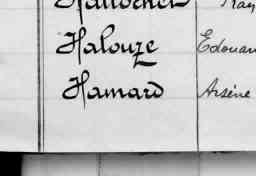 Halouze Edouar
Hamard Arsène